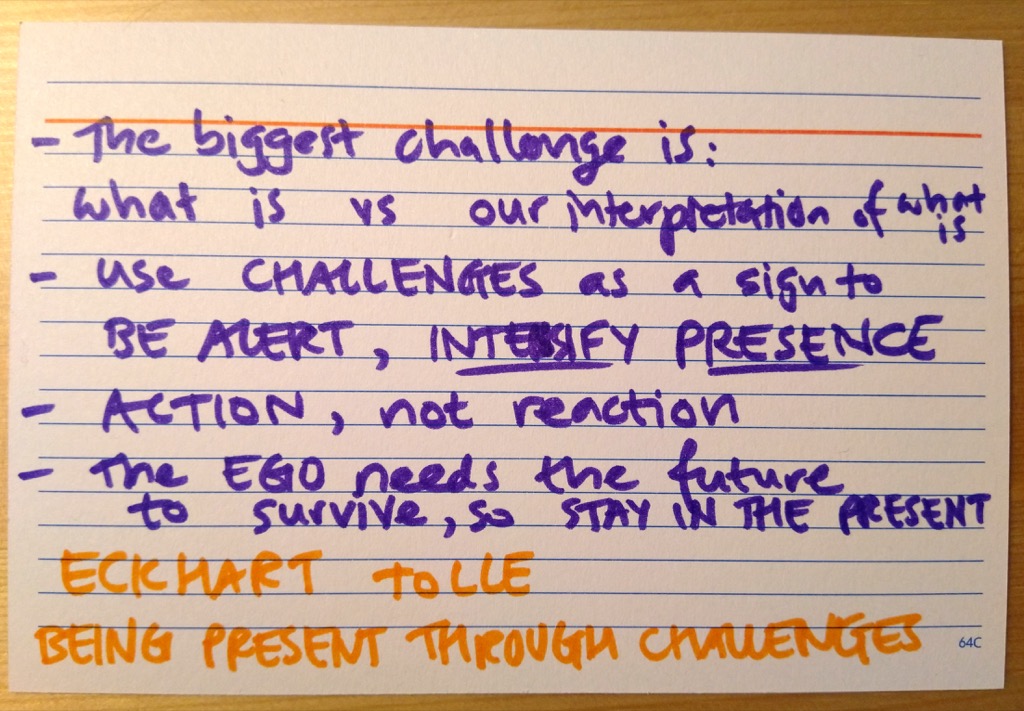 - The biggest challenge is:
what is vs our interpretation of what is
- use CHALLENGES as a sign to
BE ALERT, INTENSIFY PRESENCE
- ACTION, not reaction
- The EGO needs the future
to survive, so STAY IN THE PRESENT
ECKHART TOLLE
BEING PRESENT THROUGH CHALLENGES
64C